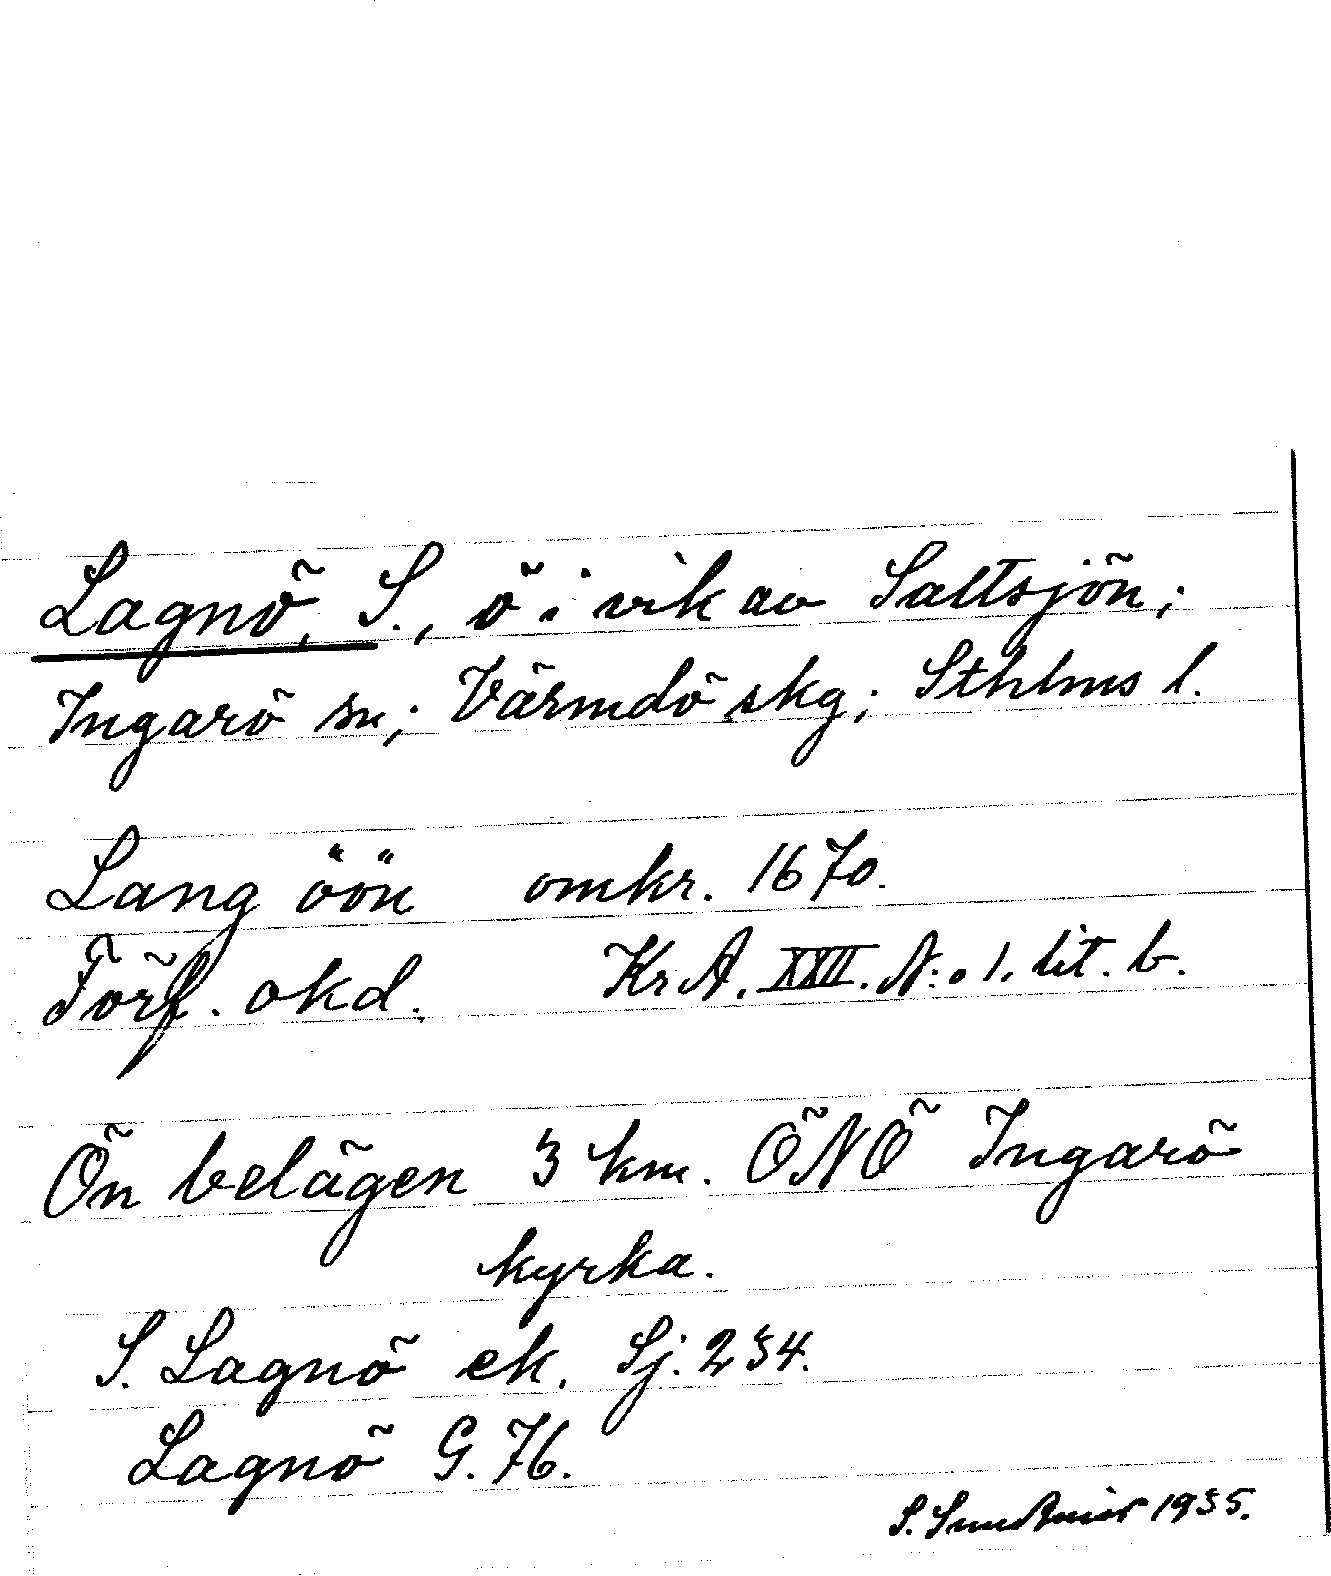 Lagnö, S., ö i vik av Saltsjön;
Ingarö sn; Värmdö skg; Sthlms l.
Lang öön omkr. 1670.
Förf. okd. KrA. XXII. N:o 1. lit. b.
Ön belägen 3 km. ÖNÖ Ingarö
kyrka.
S. Lagnö ek. Sj. 234.
Lagnö G. 76.
S. 1935.